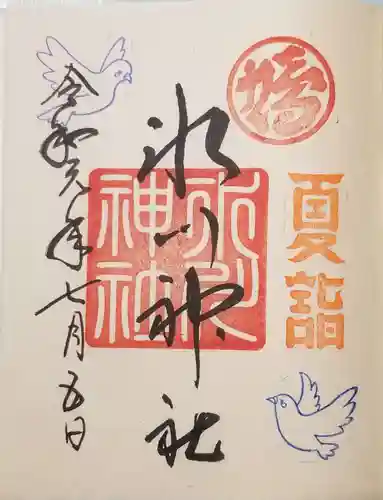 鳩
夏詣
氷川神社
氷川神社
令和元年七月五日